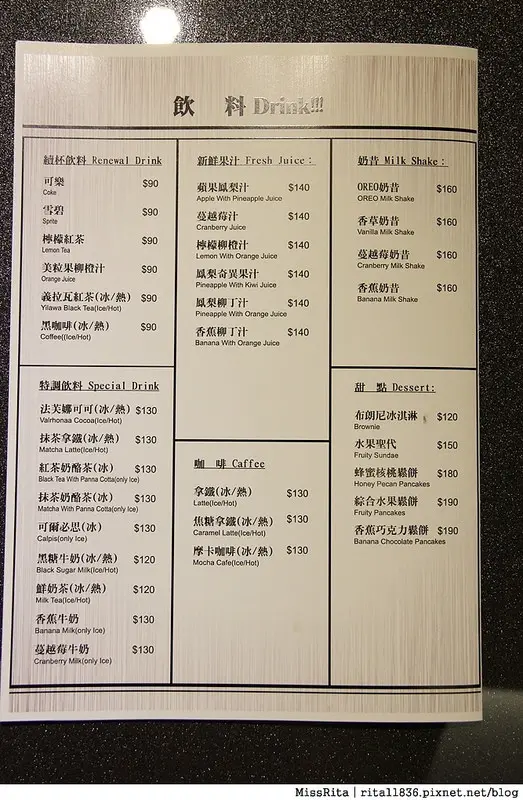 飲 料 Drink!!!
續杯飲料 Renewal Drink
可樂 $90
Coke
雪碧 $90
Sprite
檸檬紅茶 $90
Lemon Tea
美粒果柳橙汁 $90
Orange Juice
義拉瓦紅茶(冰/熱) $90
Yilawa Black Tea(Ice/Hot)
黑咖啡(冰/熱) $90
Coffee((Ice/Hot)
特調飲料 Special Drink
法芙娜可可(冰/熱) $130
Valrhonaa Cocoa(Ice/Hot)
抹茶拿鐵(冰/熱) $130
Matcha Latte(Ice/Hot)
紅茶奶酪茶(冰) $130
Black Tea With Panna Cotta(only Ice)
抹茶奶酪茶(冰) $130
Matcha With Panna Cotta(only Ice)
可爾必思(冰) $130
Calpis(only Ice)
黑糖牛奶(冰/熱) $120
Black Sugar Milk(Ice/Hot)
鮮奶茶(冰/熱) $120
Milk Tea(Ice/Hot)
香蕉牛奶 $130
Banana Milk(only Ice)
蔓越莓牛奶 $130
Cranberry Milk(only Ice)
新鮮果汁 Fresh Juice：
蘋果鳳梨汁 $140
Apple With Pineapple Juice
蔓越莓汁 $140
Cranberry Juice
檸檬柳橙汁 $140
Lemon With Orange Juice
鳳梨奇異果汁 $140
Pineapple With Kiwi Juice
鳳梨柳丁汁 $140
Pineapple With Orange Juice
香蕉柳丁汁 $140
Banana With Orange Juice
咖 啡 Caffee
拿鐵(冰/熱) $130
Latte(Ice/Hot)
焦糖拿鐵(冰/熱) $130
Caramel Latte(Ice/Hot)
摩卡咖啡(冰/熱) $130
Mocha Cafe(Ice/Hot)
奶昔 Milk Shake：
OREO奶昔 $160
OREO Milk Shake
香草奶昔 $160
Vanilla Milk Shake
蔓越莓奶昔 $160
Cranberry Milk Shake
香蕉奶昔 $160
Banana Milk Shake
甜 點 Dessert:
布朗尼冰淇淋 $120
Brownie
水果聖代 $150
Fruity Sundae
蜂蜜核桃鬆餅 $180
Honey Pecan Pancakes
綜合水果鬆餅 $190
Fruity Pancakes
香蕉巧克力鬆餅 $190
Banana Chocolate Pancakes
MissRita | rita11836.pixnet.net/blog